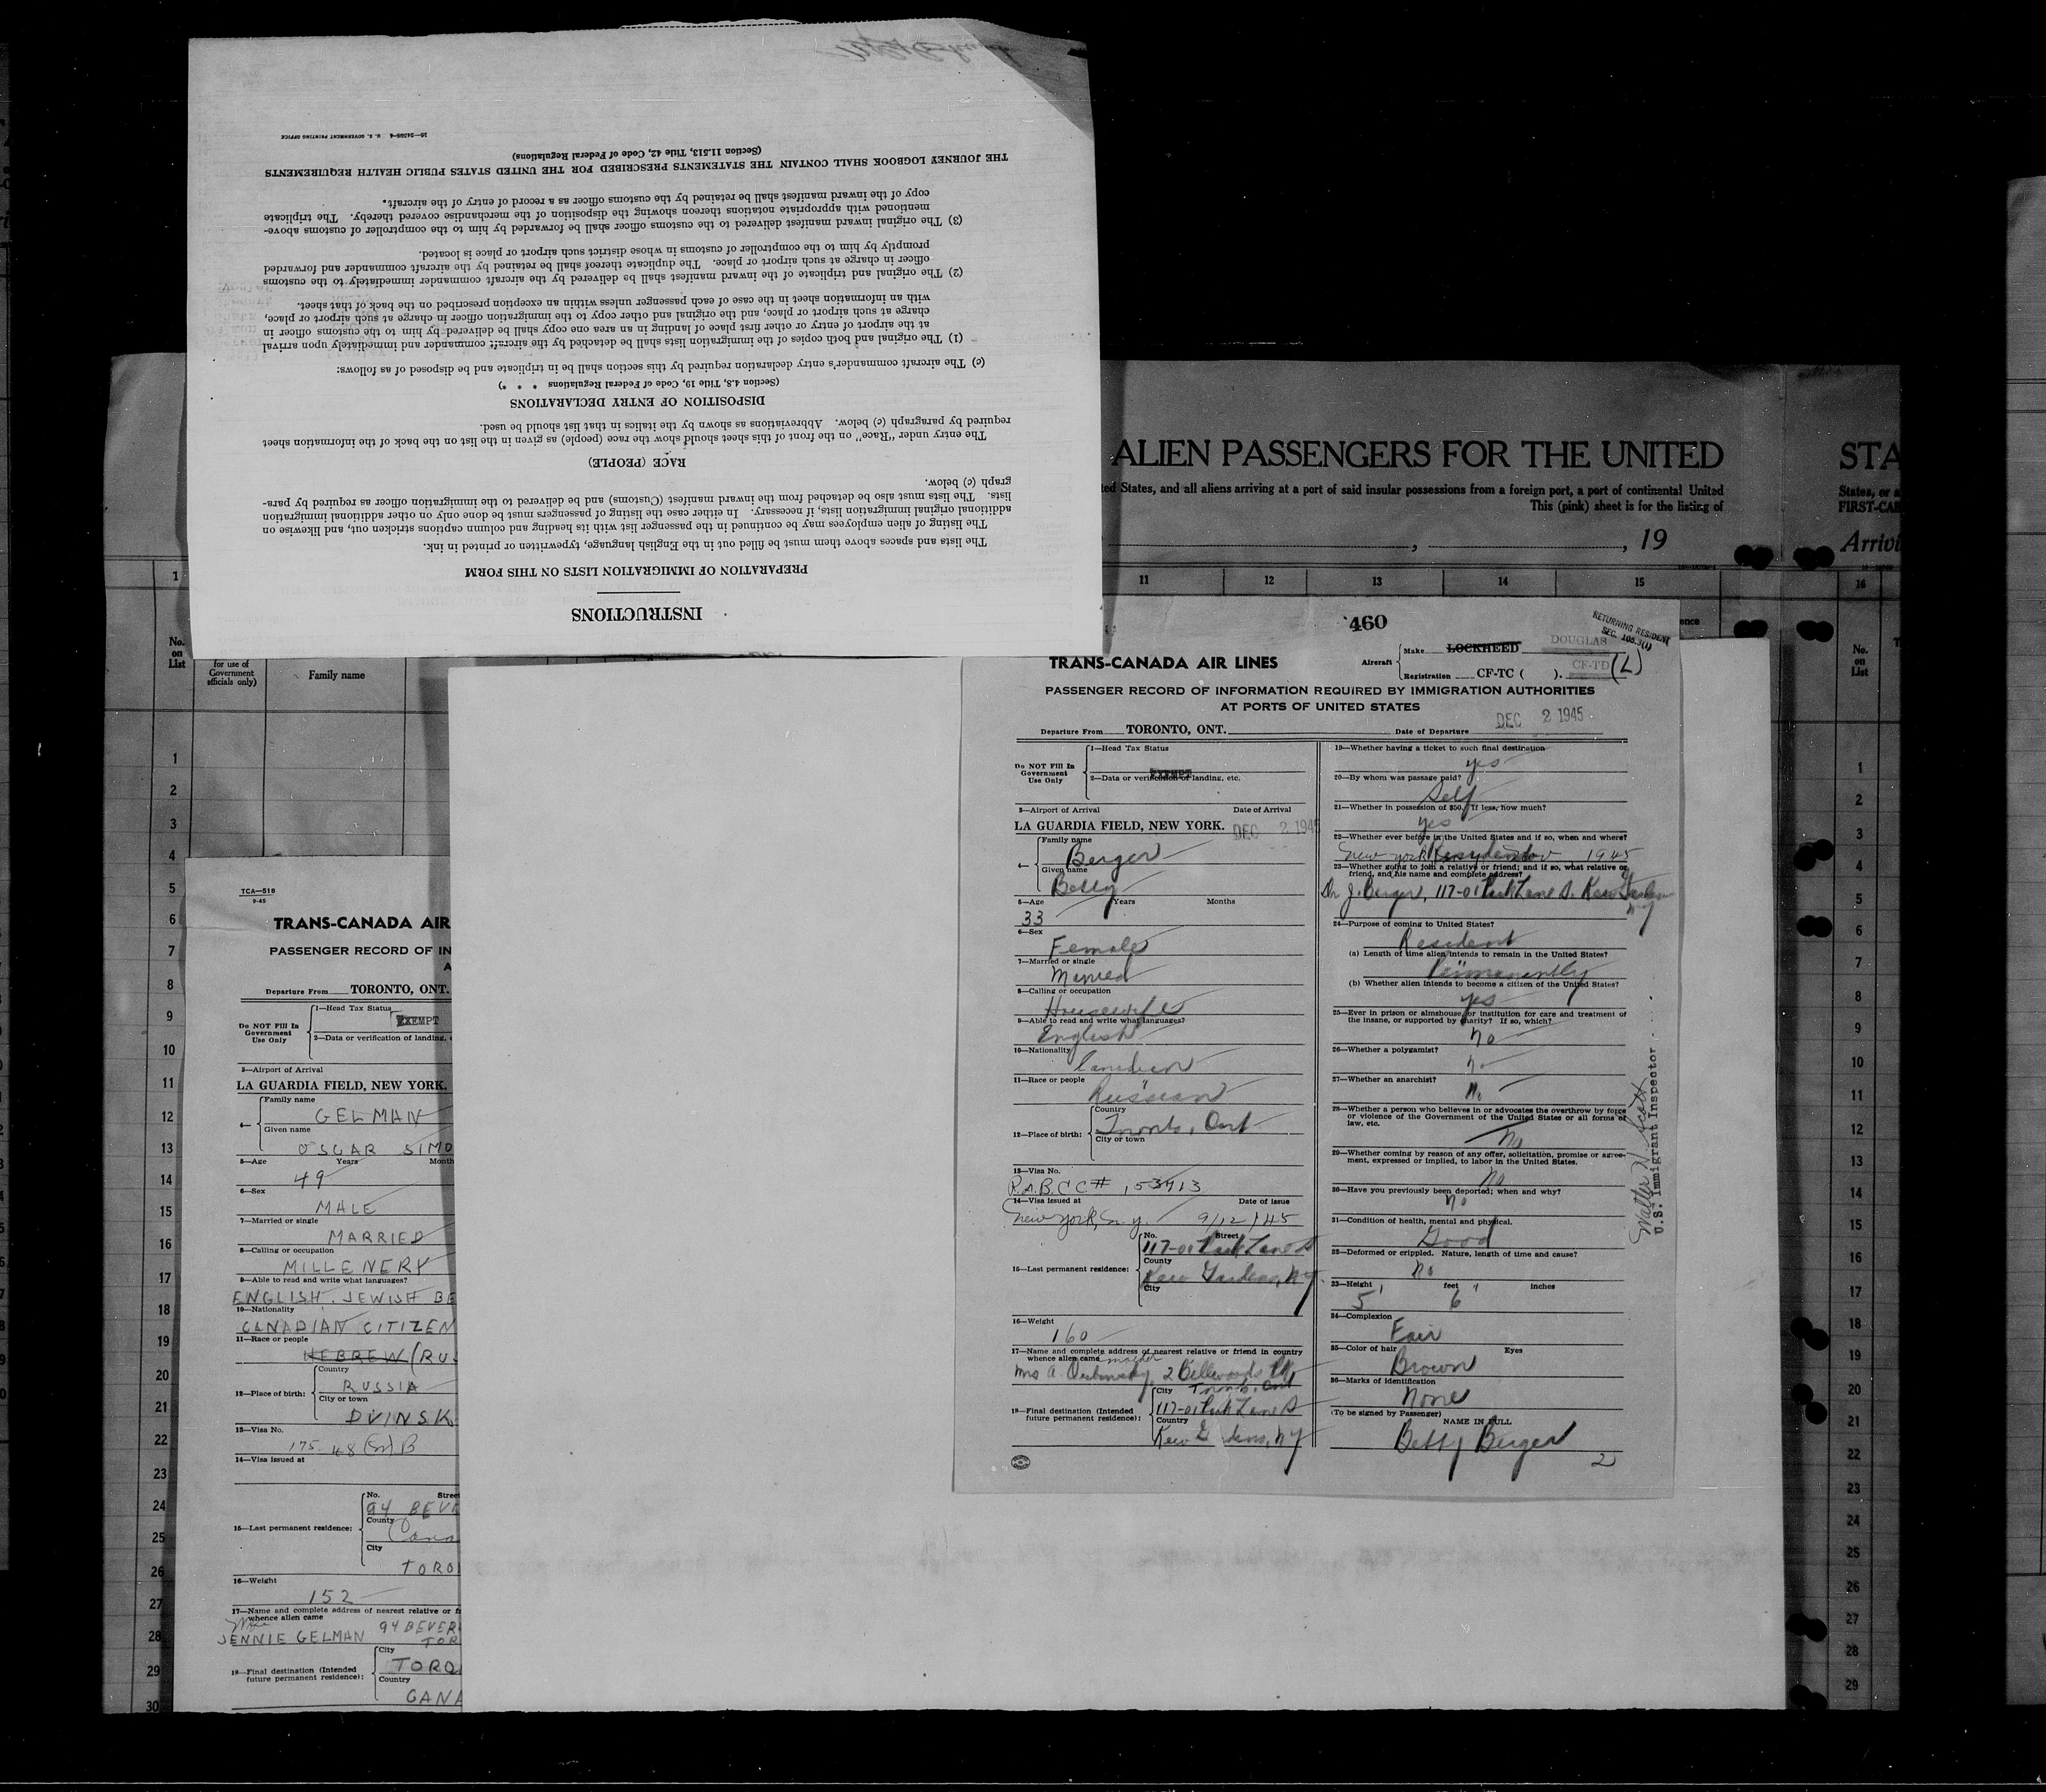 INSTRUCTIONS
PREPARATION OF IMMIGRATION LISTS ON THIS FORM
The lists and spaces above them must be filled out in the English language, typewritten or printed in ink.
The listing of alien employees may be continued in the passenger list with its heading and column captions stricken out, and likewise on
additional original immigration lists, if necessary. In either case the listing of passengers must be done only on other additional immigration
lists. The lists must also be detached from the inward manifest (Customs) and be delivered to the immigration officer as required by para-
graph (c) below.
RACE (PEOPLE)
The entry under "Race" on the front of this sheet should show the race (people) as given in the list on the back of the information sheet
required by paragraph (c) below. Abbreviations as shown by the italics in that list should be used.
DISPOSITION OF ENTRY DECLARATIONS
(Section 4.8, Title 19, Code of Federal Regulations * * *)
(c) The aircraft commander's entry declaration required by this section shall be in triplicate and be disposed of as follows:
(1) The original and both copies of the immigration lists shall be detached by the aircraft commander and immediately upon arrival
at the airport of entry or other first place of landing in an area one copy shall be delivered by him to the customs officer in
charge at such airport or place, and the original and other copy to the immigration officer in charge at such airport or place,
with an information sheet in the case of each passenger unless within an exception prescribed on the back of that sheet.
(2) The original and triplicate of the inward manifest shall be delivered by the aircraft commander immediately to the customs
officer in charge at such airport or place. The duplicate thereof shall be retained by the aircraft commander and forwarded
promptly by him to the comptroller of customs in whose district such airport or place is located.
(3) The original inward manifest delivered to the customs officer shall be forwarded by him to the comptroller of customs above-
mentioned with appropriate notations thereon showing the disposition of the merchandise covered thereby. The triplicate
copy of the inward manifest shall be retained by the customs officer as a record of entry of the aircraft.
THE JOURNEY LOGBOOK SHALL CONTAIN THE STATEMENTS PRESCRIBED FOR THE UNITED STATES PUBLIC HEALTH REQUIREMENTS
(Section 11.513, Title 42, Code of Federal Regulations)
16—24398-4 U. S. GOVERNMENT PRINTING OFFICE
ALIEN PASSENGERS FOR THE UNITED
STA
ted States, and all aliens arriving at a port of said insular possessions from a foreign port, a port of continental United
This (pink) sheet is for the listing of
States, or a
FIRST-CAB
, , 19
Arrivi
1 11 12 13 14 15 16
No.
on
List
for use of
Government
officials only)
Family name
No.
on
List
1
2
3
4
5
6
7
8
9
10
11
12
13
14
15
16
17
18
19
20
21
22
23
24
25
26
27
28
29
30
TCA—518
9-45
TRANS-CANADA AIR
PASSENGER RECORD OF IN
A
Departure From TORONTO, ONT.
Do NOT Fill In
Government
Use Only
1—Head Tax Status
EXEMPT
2—Data or verification of landing,
3—Airport of Arrival
LA GUARDIA FIELD, NEW YORK.
4—
Family name
GELMAN
Given name
OSCAR SIMO
5—Age Years Month
49
6—Sex
MALE
7—Married or single
MARRIED
8—Calling or occupation
MILLENERY
9—Able to read and write what languages?
ENGLISH. JEWISH BE
10—Nationality
CANADIAN CITIZEN
11—Race or people
HEBREW (RUS
12—Place of birth:
Country
RUSSIA
City or town
DVINSK
13—Visa No.
175-48 (Sn) B
14—Visa issued at
15—Last permanent residence:
No. Stree
94 BEVE
County
Cana
City
TORO
16—Weight
152
17—Name and complete address of nearest relative or fr
whence alien came
Wife
JENNIE GELMAN 94 BEVER
TOR
18—Final destination (Intended
future permanent residence):
City
TORO
Country
CANA
460
RETURNING RESIDENT
SEC. 108.3(1)
TRANS-CANADA AIR LINES
Aircraft
Make LOCKHEED DOUGLAS
Registration CF-TC ( ). CF-TD (L)
PASSENGER RECORD OF INFORMATION REQUIRED BY IMMIGRATION AUTHORITIES
AT PORTS OF UNITED STATES
Departure From TORONTO, ONT. Date of Departure DEC 2 1945
Do NOT Fill In
Government
Use Only
1—Head Tax Status
EXEMPT
2—Data or verification of landing, etc.
3—Airport of Arrival Date of Arrival
LA GUARDIA FIELD, NEW YORK. DEC 2 1945
4—
Family name
Berger
Given name
Betty
5—Age Years Months
33
6—Sex
Female
7—Married or single
Married
8—Calling or occupation
Housewife
9—Able to read and write what languages?
English
10—Nationality
Canadian
11—Race or people
Russian
12—Place of birth:
Country
Toronto, Ont
City or town
13—Visa No.
R.A.B.C.C # 153913
14—Visa issued at Date of issue
New York, N.Y. 9/12/45
15—Last permanent residence:
No. Street
117-01 Park Lane S
County
Kew Gardens, NY
City
16—Weight
160
17—Name and complete address of nearest relative or friend in country
whence alien came mother
Mrs A. 2 Bellwoods Pk
Toronto, Ont
18—Final destination (Intended
future permanent residence):
City
117-01 Park Lane S
Country
Kew Gardens, NY
19—Whether having a ticket to such final destination
yes
20—By whom was passage paid?
Self
21—Whether in possession of $50. If less, how much?
yes
22—Whether ever before in the United States and if so, when and where?
New York Resident Nov 1945
23—Whether going to join a relative or friend; and if so, what relative or
friend, and his name and complete address?
Dr J. Berger, 117-01 Park Lane S. Kew Gardens
NY
24—Purpose of coming to United States?
Resident
(a) Length of time alien intends to remain in the United States?
Permanently
(b) Whether alien intends to become a citizen of the United States?
yes
25—Ever in prison or almshouse, or institution for care and treatment of
the insane, or supported by charity? If so, which?
no
26—Whether a polygamist?
no
27—Whether an anarchist?
No
28—Whether a person who believes in or advocates the overthrow by force
or violence of the Government of the United States or all forms of
law, etc.
No
29—Whether coming by reason of any offer, solicitation, promise or agree-
ment, expressed or implied, to labor in the United States.
No
30—Have you previously been deported; when and why?
no
31—Condition of health, mental and physical.
Good
32—Deformed or crippled. Nature, length of time and cause?
no
33—Height feet inches
5' 6"
34—Complexion
Fair
35—Color of hair Eyes
Brown
36—Marks of identification
None
(To be signed by Passenger)
NAME IN FULL
Betty Berger
2
Walter W. Scott
U.S. Immigrant Inspector
1
2
3
4
5
6
7
8
9
10
11
12
13
14
15
16
17
18
19
20
21
22
23
24
25
26
27
28
29